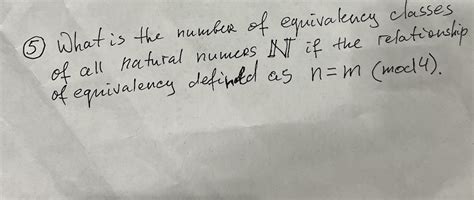 ⑤ What is the number of equivalency classes
of all natural numers ℕ if the relationship
of equivalency defined as n=m (mod 4).